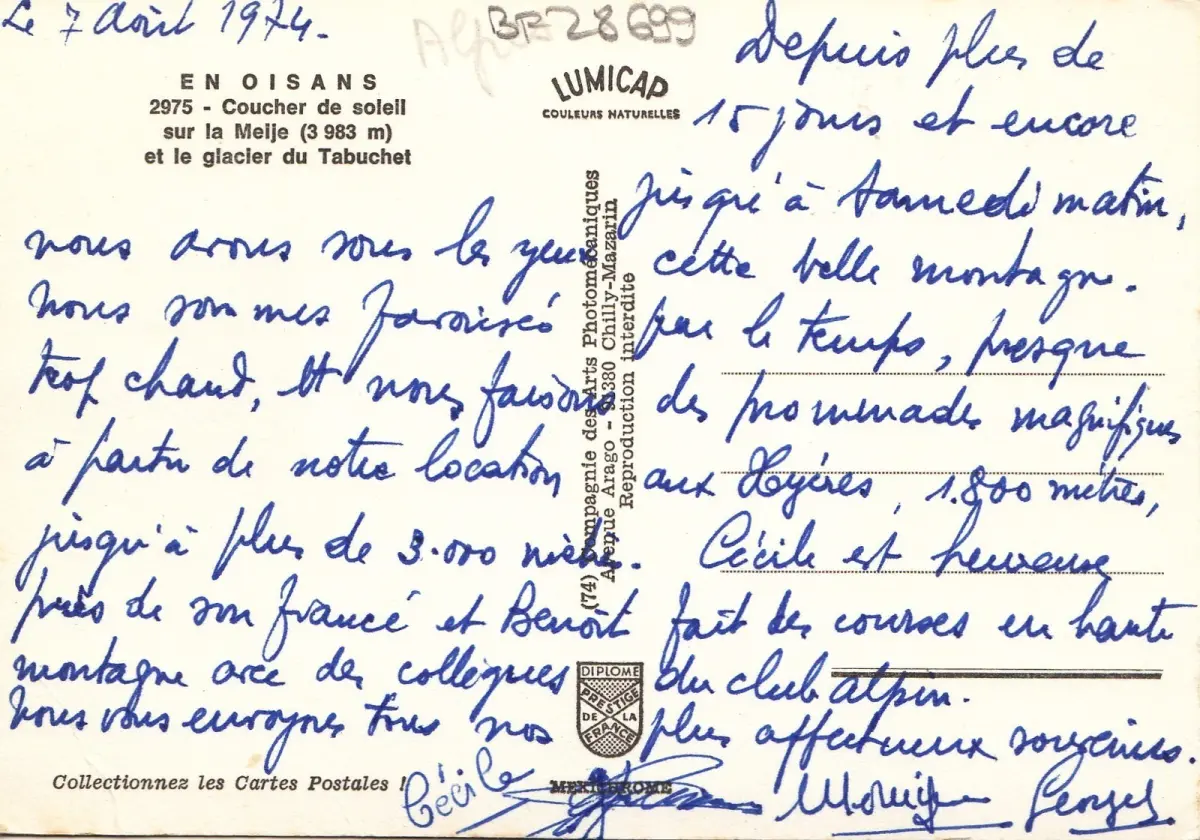 Le 7 Août 1974.
BF 28699
EN OISANS
2975 - Coucher de soleil
sur la Meije (3 983 m)
et le glacier du Tabuchet
LUMICAP
COULEURS NATURELLES
Depuis plus de
15 jours et encore
jusqu'à samedi matin,
nous avons sous les yeux cette belle montagne.
Nous sommes favorisés par le temps, presque
trop chaud, et nous faisons des promenades magnifiques
à partir de notre location aux Hyères, 1.800 mètres,
jusqu'à plus de 3.000 mètres. Cécile est heureuse
près de son fiancé et Benoît fait des courses en haute
montagne avec des collègues du club alpin.
Nous vous envoyons tous nos plus affectueux souvenirs.
Cécile
Monique Georges
(74) Compagnie des Arts Photomécaniques
Avenue Arago - 91380 Chilly-Mazarin
Reproduction interdite
DIPLOME
PRESTIGE
DE LA
FRANCE
MEXICHROME
Collectionnez les Cartes Postales !